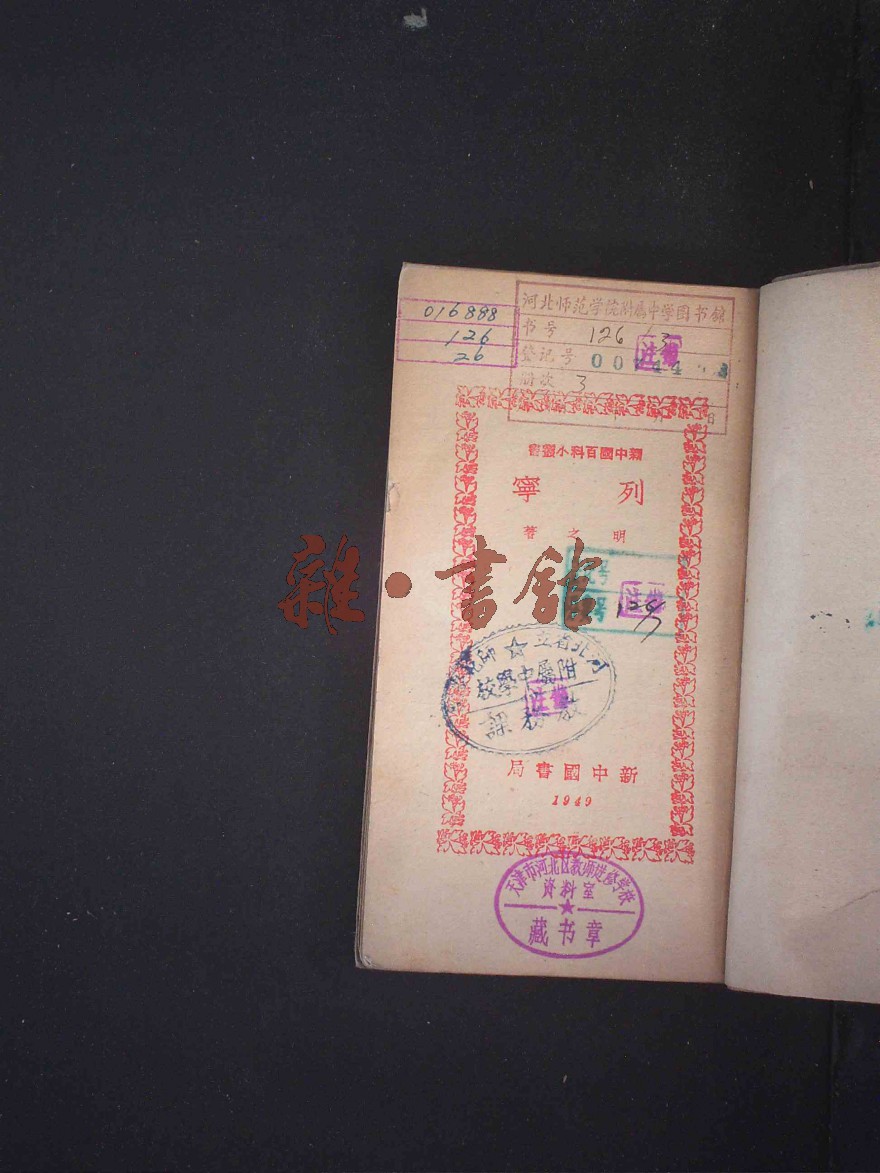 016888
126
26
河北师范学院附属中学图书馆
书号 126
登记号 00
册次 3
注销
日
新中國百科小叢書
列寧
明之著
号
注销
河北省立 ☆ 師範
附屬中學校
注销
教務課
新中國書局
1949
天津市河北区教师进修学校
资料室
★
藏书章
雜·書館